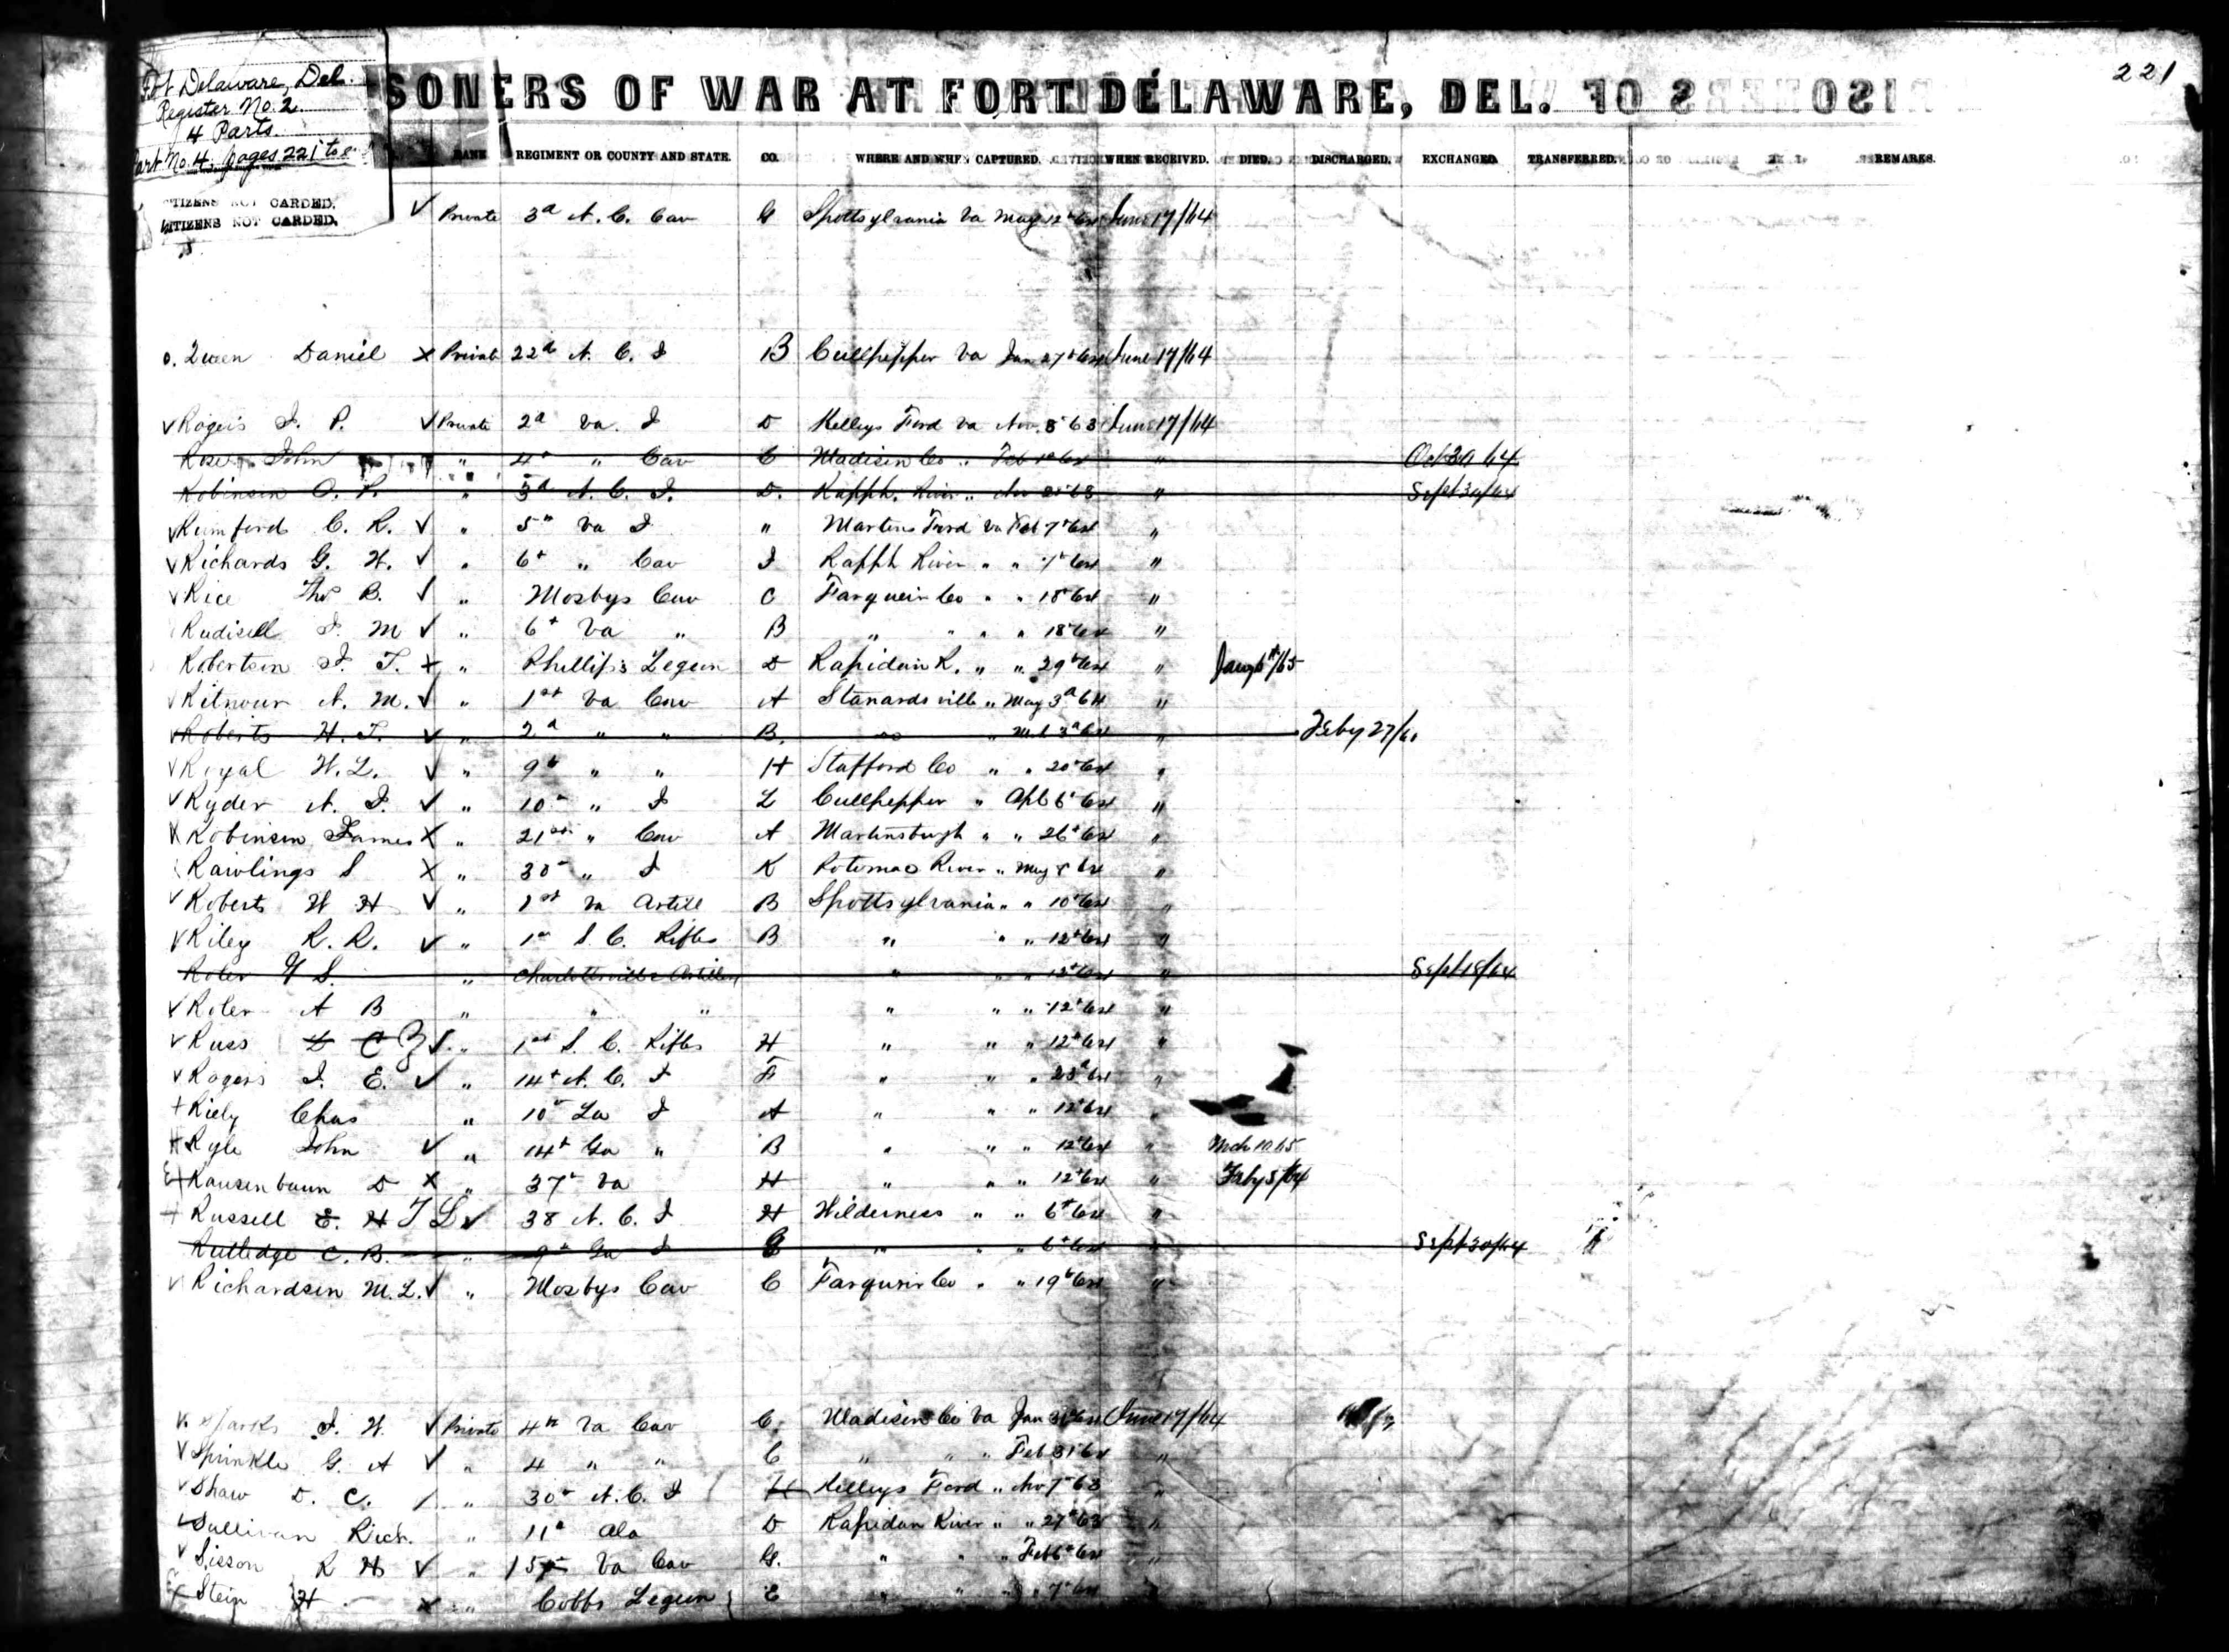 Fort Delaware, Del.
Register No. 2
4 Parts.
Part No. 4, pages 221 to
CITIZENS NOT CARDED.
CITIZENS NOT CARDED.
221
SONERS OF WAR AT FORT DELAWARE, DEL.
RANK REGIMENT OR COUNTY AND STATE. CO. WHERE AND WHEN CAPTURED. WHEN RECEIVED. DIED. DISCHARGED. EXCHANGED. TRANSFERRED. REMARKS.
Private 3d N. C. Cav G Spottsylvania Va May 12th 64 June 17/64
Queen Daniel Private 22d N. C. I B Cullpepper Va Jan 27th 64 June 17/64
Rogers J. P. Private 2d Va. I D Kelleys Ford Va Nov. 8th 63 June 17/64
Rose John " 4th " Cav C Madison Co " Feb 64 " Oct 30 64
Robinson O. P. " 3d N. C. I. D. Rapph. River " Nov 63 " Sept 30/64
Rumford C. R. " 5th Va I " Martins Ford Va Feb 7th 64 "
Richards G. W. " 6th " Cav I Rapph River " " 7th 64 "
Rice Thos B. " Mosbys Cav C Farqueir Co " " 18th 64 "
Rudisell J. M " 6th Va " B " " " " 18th 64 "
Robertson J. T. " Phillips Legion D Rapidan R. " " 29th 64 " Jany 6th/65
Ritnour N. M. " 1st Va Cav A Stanardsville " May 3d 64 "
Roberts H. T. " 2d " " B. " 3d 64 " Feby 27/
Royal W. L. " 9th " " H Stafford Co " " 20th 64 "
Ryder N. J. " 10th " I L Cullpepper " Apl 6th 64 "
Robinson James " 21st " Cav A Martinsburgh " " 26th 64 "
Rawlings S " 30th " I K Potomac River " May 64 "
Roberts W H " 1st Va Artill B Spottsylvania " " 10th 64 "
Riley R. R. " 1st S. C. Rifles B " " " 12th 64 "
Roler S. " Charlottsville Artillery " " " 12th 64 " Sept 18/64
Roler A B " " " " " " 12th 64 "
Russ D C " 1st S. C. Rifles H " " " 12th 64 "
Rogers J. E. " 14th N. C. I F " " " 23d 64 "
Riely Chas " 10th La I A " " " 12th 64 "
Ryle John " 14th Ga " B " " " 12th 64 " Mch 10 65
Rausenbaum D " 37th Va H " " " 12th 64 " Feby 5/64
Russell E. H T L 38 N. C. I H Wilderness " " 6th 64 "
Rutledge C. B. " 9th Ga I G " " " 6th 64 " Sept 30/64
Richardson M. L. " Mosbys Cav C Farqueir Co " " 19th 64 "
Sparks J. W. Private 4th Va Cav C. Madison Co Va Jan 31st 64 June 17/64
Sprinkle G. A " 4 " " C " " " Feb 64 "
Shaw D. C. " 30th N. C. I H Kelleys Ford " Nov 7th 63 "
Sullivan Rich. " 11th Ala D Rapidan River " " 27th 63 "
Sisson R H " 15th Va Cav G. " " " Feb 6th 64 "
Stein H " Cobbs Legion E " " " " 7th 64 "